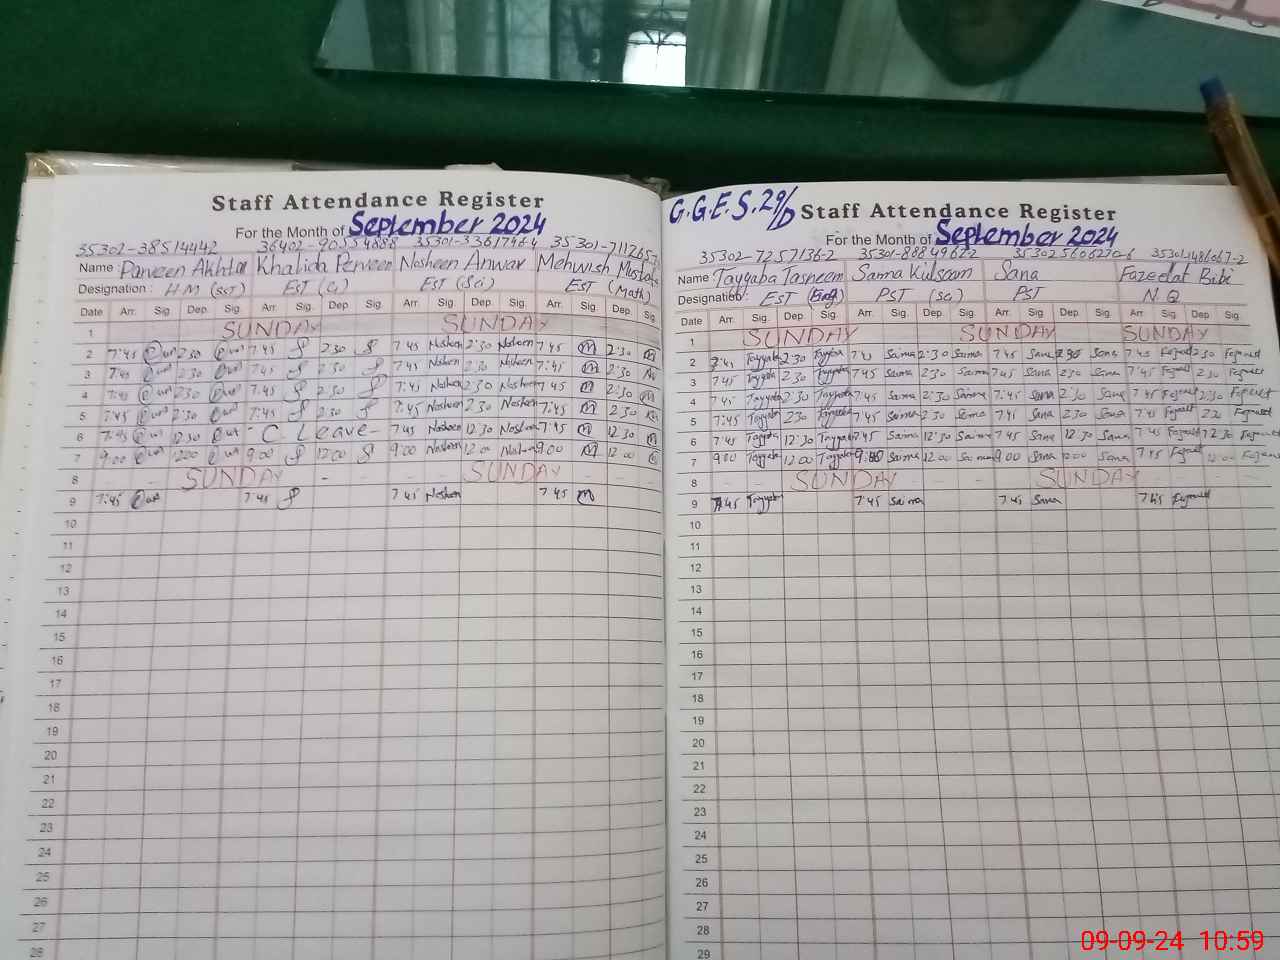 Staff Attendance Register
For the Month of September 2024
35302-38514442 36402-90554888 35301-33617464 35301-711265
Name Parveen Akhtar Khalida Perveen Nosheen Anwar Mehwish
Designation: H M (SST) EST (C) EST (Sci) EST (Math)
Date Arr. Sig. Dep. Sig. Arr. Sig. Dep. Sig. Arr. Sig. Dep. Sig. Arr. Sig. Dep. Sig.
1 SUNDAY SUNDAY
2 7:45 2:30 7 45 2:30 7 45 Nosheen 2:30 Nosheen 7 45 m 2:30 m
3 7:45 2:30 7:45 2:30 7 45 Nosheen 2:30 Nosheen 7:45 m 2:30
4 7:45 2:30 7.45 2:30 7:45 Nosheen 2:30 Nosheen 7 45 m 2:30 m
5 7:45 2:30 7:45 2:30 7:45 Nosheen 2:30 Nosheen 7:45 m 2:30 m
6 7:45 12:30 C. Leave - 7:45 Nosheen 12:30 Nosheen 7:45 m 12:30 m
7 9:00 12:00 9:00 12:00 9:00 Nosheen 12:00 Nosheen 9:00 m 12:00
8 SUNDAY SUNDAY
9 7:45 7 45 7 45 Nosheen 7 45 m
10
11
12
13
14
15
16
17
18
19
20
21
22
23
24
25
26
27
28
G.G.E.S. 29/D
Staff Attendance Register
For the Month of September 2024
35302-7257136-2 35301-8084962-2
Name Tayyaba Tasneem Saima Kulsoom Sana Fazeelat Bibi
Designation: EST (Eng) PST (sci) PST N.Q
Date Arr. Sig. Dep. Sig. Arr. Sig. Dep Sig. Arr. Sig. Dep. Sig. Arr. Sig. Dep. Sig.
1 SUNDAY SUNDAY SUNDAY
2 7:45 Tayyaba 2:30 Tayyaba Saima 2:30 Saima 7 45 Sana 2:30 Sana 7 45 2:30
3 7 45 Tayyaba 2:30 Tayyaba 7 45 Saima 2:30 Saima 7 45 Sana 2:30 Sana 7 45 2:30
4 7 45 Tayyaba 2:30 Tayyaba 7 45 Saima 2:30 Saima 7:45 Sana 2:30 Sana 7 45 2:30
5 7:45 Tayyaba 2:30 Tayyaba 7 45 Saima 2:30 Saima 7 45 Sana 2:30 Sana 7 45
6 7 45 Tayyaba 12:30 Tayyaba 7 45 Saima 12:30 Saima 7 45 Sana 12:30 Sana 7 45
7 9:00 Tayyaba 12:00 Tayyaba 9:00 Saima 12:00 Saima 9:00 Sana 12:00 Sana 7 45
8 SUNDAY SUNDAY
9 7:45 Tayyaba 7 45 Saima 7 45 Sana 7 45
10
11
12
13
14
15
16
17
18
19
20
21
22
23
24
25
26
27
28
29
09-09-24 10:59